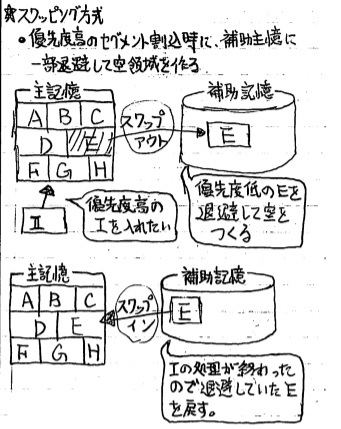 ★スワッピング方式
・優先度高のセグメント割込時に、補助主憶に
一部退避して空領域を作る
主記憶
A B C
D E
F G H
スワップ
アウト
補助記憶
E
I
優先度高の
Iを入れたい
優先度低のEを
退避して空を
つくる
主記憶
A B C
D E
F G H
スワップ
イン
補助記憶
E
Iの処理が終わった
ので退避していたE
を戻す。